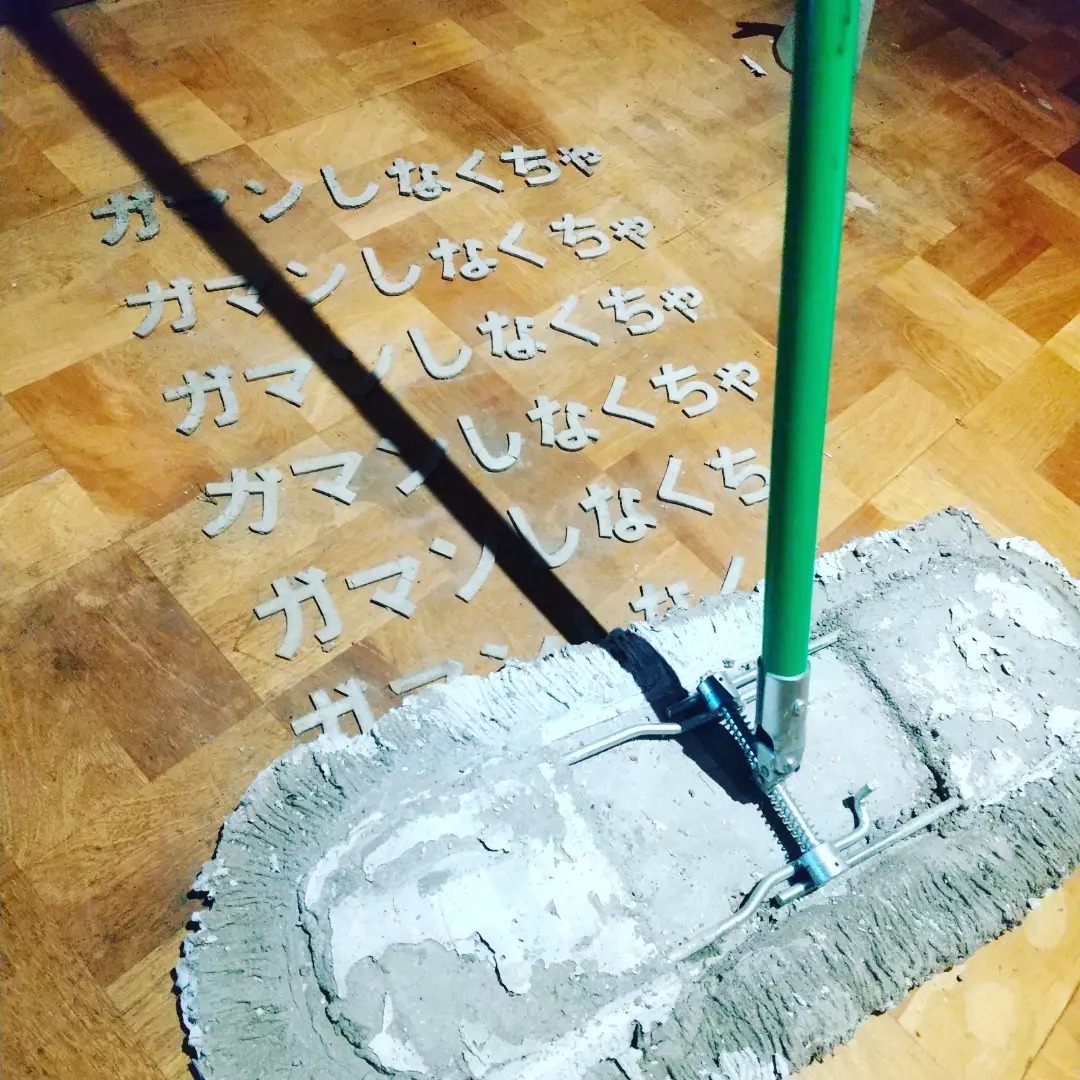 ガマンしなくちゃ
ガマンしなくちゃ
ガマンしなくちゃ
ガマンしなくちゃ
ガマンしなくち
ガマンしなく